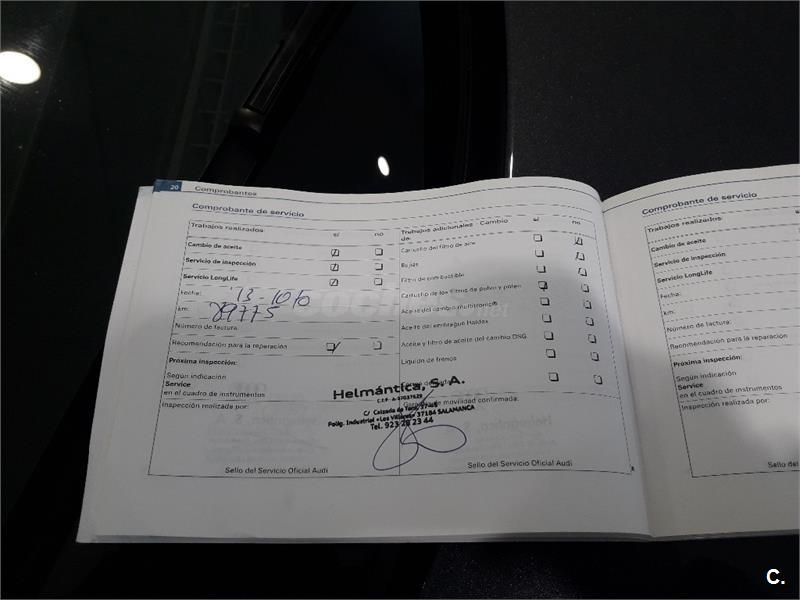 20 Comprobantes
Comprobante de servicio
Trabajos realizados sí no
Cambio de aceite
Servicio de inspección
Servicio LongLife
Fecha:
km: 89775
Número de factura:
Recomendación para la reparación
Próxima inspección:
Según indicación
Service
en el cuadro de instrumentos
Inspección realizada por:
Sello del Servicio Oficial Audi
Trabajos adicionales - Cambio de: sí no
Cartucho del filtro de aire
Bujías
Filtro de combustible
Cartucho de los filtros de polvo y polen
Aceite del cambio multitronic®
Aceite del embrague Haldex
Aceite y filtro de aceite del cambio DSG
Líquido de frenos
Helmántica, S. A.
C/ Calzada de Toro
Políg. Industrial «Los Villares» 37184 SALAMANCA
Tel. 923 22 23 44
movilidad confirmada:
Sello del Servicio Oficial Audi
Comprobante de servicio
Trabajos realizados
Cambio de aceite
Servicio de inspección
Servicio LongLife
Fecha:
km:
Número de factura:
Recomendación para la reparación
Próxima inspección:
Según indicación
Service
en el cuadro de instrumentos
Inspección realizada por:
Sello del
C.